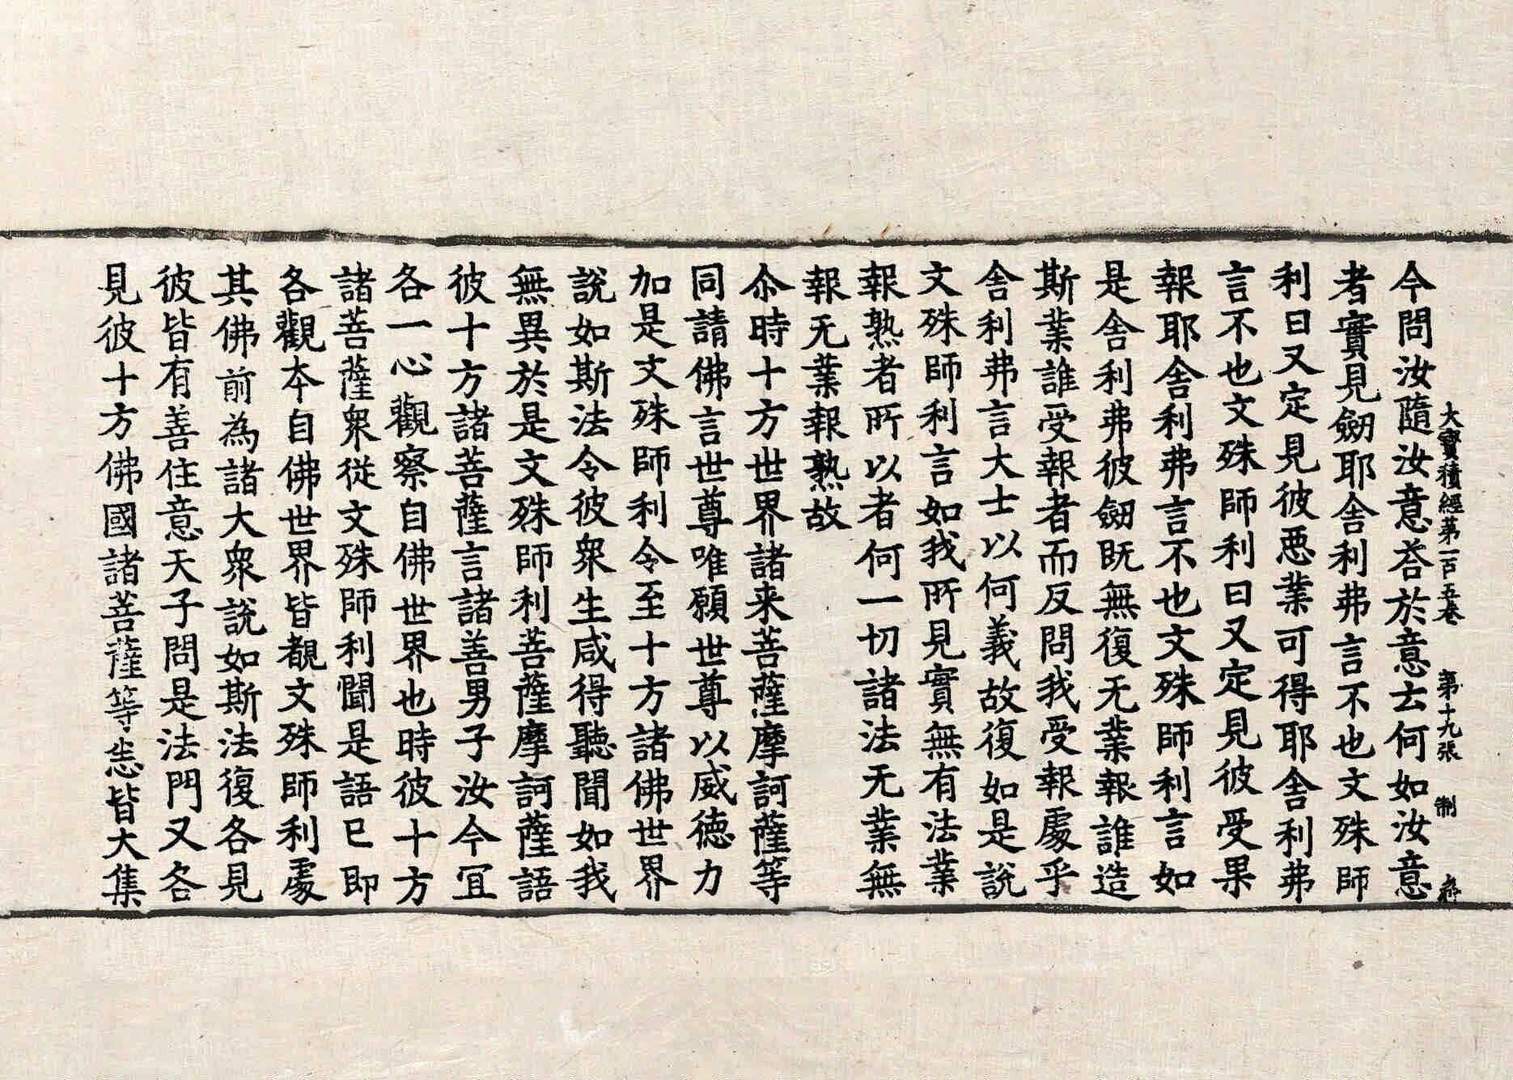 大寶積經第一百五卷　第十九張　制
今問汝隨汝意荅於意云何如汝意
者實見劒耶舍利弗言不也文殊師
利曰又定見彼惡業可得耶舍利弗
言不也文殊師利曰又定見彼受果
報耶舍利弗言不也文殊師利言如
是舍利弗彼劒既無復无業報誰造
斯業誰受報者而反問我受報處乎
舍利弗言大士以何義故復如是說
文殊師利言如我所見實無有法業
報熟者所以者何一切諸法无業無
報无業報熟故
尒時十方世界諸来菩薩摩訶薩等
同請佛言世尊唯願世尊以威德力
加是文殊師利令至十方諸佛世界
說如斯法令彼衆生咸得聽聞如我
無異於是文殊師利菩薩摩訶薩語
彼十方諸菩薩言諸善男子汝今冝
各一心觀察自佛世界也時彼十方
諸菩薩衆從文殊師利聞是語已即
各觀夲自佛世界皆覩文殊師利處
其佛前為諸大衆說如斯法復各見
彼皆有善住意天子問是法門又各
見彼十方佛國諸菩薩等悉皆大集